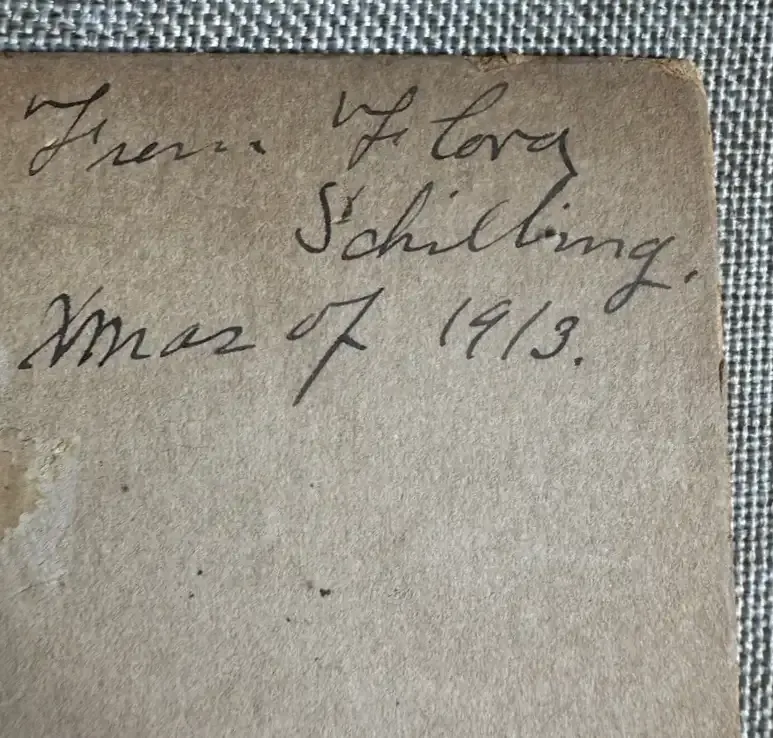 From Flora
Schilling.
Xmas of 1913.